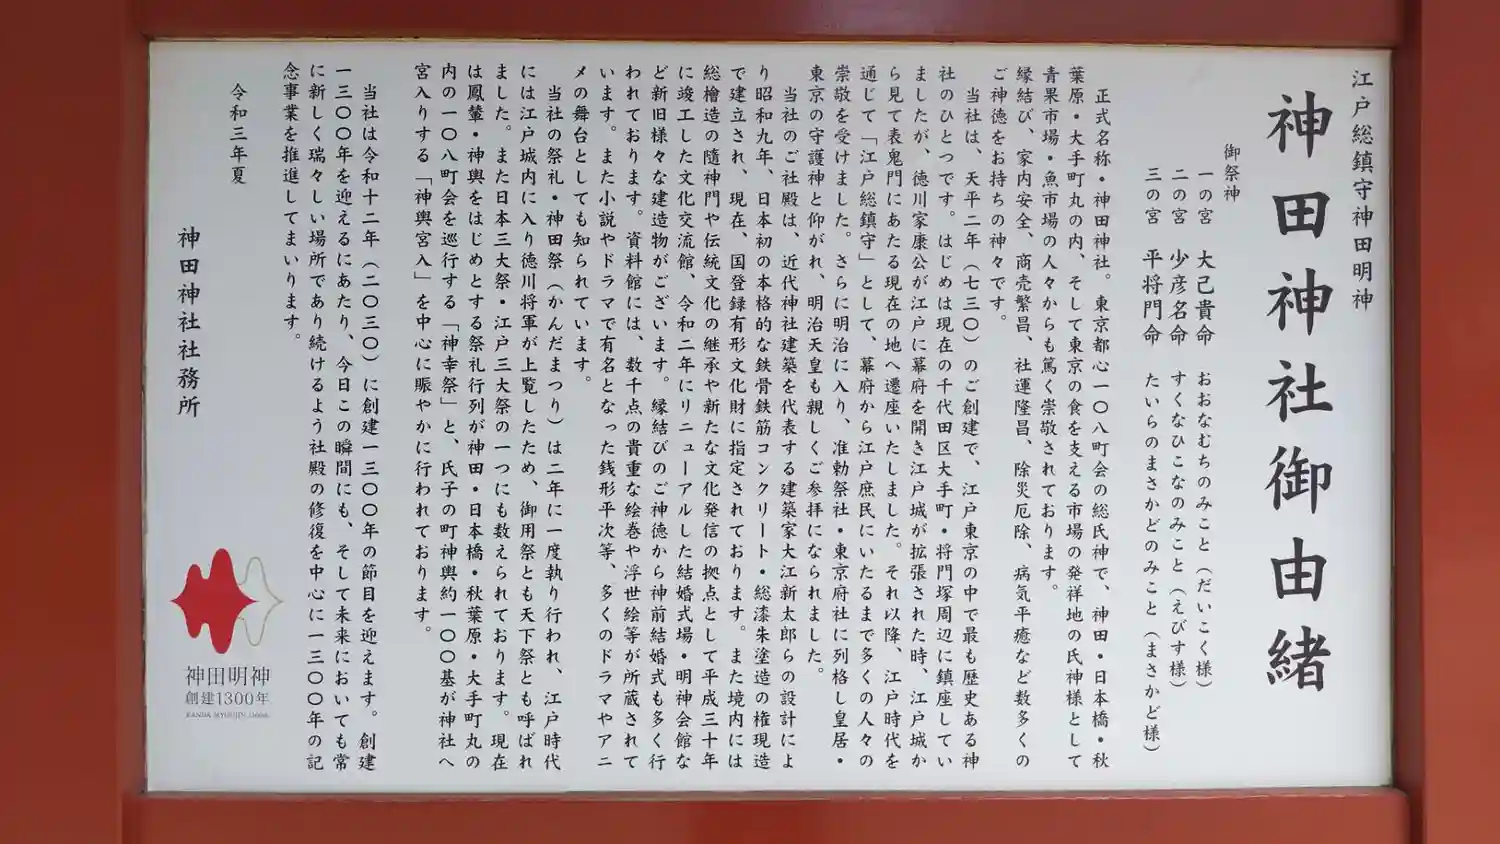 江戸総鎮守神田明神
神田神社御由緒
御祭神
一の宮　大己貴命　おおなむちのみこと（だいこく様）
二の宮　少彦名命　すくなひこなのみこと（えびす様）
三の宮　平将門命　たいらのまさかどのみこと（まさかど様）
正式名称・神田神社。東京都心一〇八町会の総氏神で、神田・日本橋・秋
葉原・大手町丸の内、そして東京の食を支える市場の発祥地の氏神様として
青果市場・魚市場の人々からも篤く崇敬されております。
縁結び、家内安全、商売繁昌、社運隆昌、除災厄除、病気平癒など数多くの
ご神徳をお持ちの神々です。
当社は、天平二年（七三〇）のご創建で、江戸東京の中で最も歴史ある神
社のひとつです。はじめは現在の千代田区大手町・将門塚周辺に鎮座してい
ましたが、徳川家康公が江戸に幕府を開き江戸城が拡張された時、江戸城か
ら見て表鬼門にあたる現在の地へ遷座いたしました。それ以降、江戸時代を
通じて「江戸総鎮守」として、幕府から江戸庶民にいたるまで多くの人々の
崇敬を受けました。さらに明治に入り、准勅祭社・東京府社に列格し皇居・
東京の守護神と仰がれ、明治天皇も親しくご参拝になられました。
当社のご社殿は、近代神社建築を代表する建築家大江新太郎らの設計によ
り昭和九年、日本初の本格的な鉄骨鉄筋コンクリート・総漆朱塗造の権現造
で建立され、現在、国登録有形文化財に指定されております。また境内には
総檜造の隨神門や伝統文化の継承や新たな文化発信の拠点として平成三十年
に竣工した文化交流館、令和二年にリニューアルした結婚式場・明神会館な
ど新旧様々な建造物がございます。縁結びのご神徳から神前結婚式も多く行
われております。資料館には、数千点の貴重な絵巻や浮世絵等が所蔵されて
います。また小説やドラマで有名となった銭形平次等、多くのドラマやアニ
メの舞台としても知られています。
当社の祭礼・神田祭（かんだまつり）は二年に一度執り行われ、江戸時代
には江戸城内に入り徳川将軍が上覧したため、御用祭とも天下祭とも呼ばれ
ました。また日本三大祭・江戸三大祭の一つにも数えられております。現在
は鳳輦・神輿をはじめとする祭礼行列が神田・日本橋・秋葉原・大手町丸の
内の一〇八町会を巡行する「神幸祭」と、氏子の町神輿約一〇〇基が神社へ
宮入りする「神輿宮入」を中心に賑やかに行われております。
当社は令和十二年（二〇三〇）に創建一三〇〇年の節目を迎えます。創建
一三〇〇年を迎えるにあたり、今日この瞬間にも、そして未来においても常
に新しく瑞々しい場所であり続けるよう社殿の修復を中心に一三〇〇年の記
念事業を推進してまいります。
令和三年夏
神田神社社務所
神田明神
創建1300年